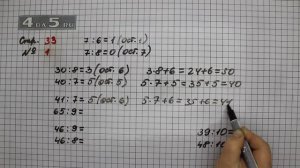 4DA5.RU
Стр. 39
№ 1
7:6=1(ост.1)
7:8=0(ост.7)
30:8=3(ост.6) 3·8+6=24+6=30
40:7=5(ост.5) 5·7+5=35+5=40
41:7=5(ост.6) 5·7+6=35+6=41
65:9=
46:9= 39:10=
46:8= 48:10=